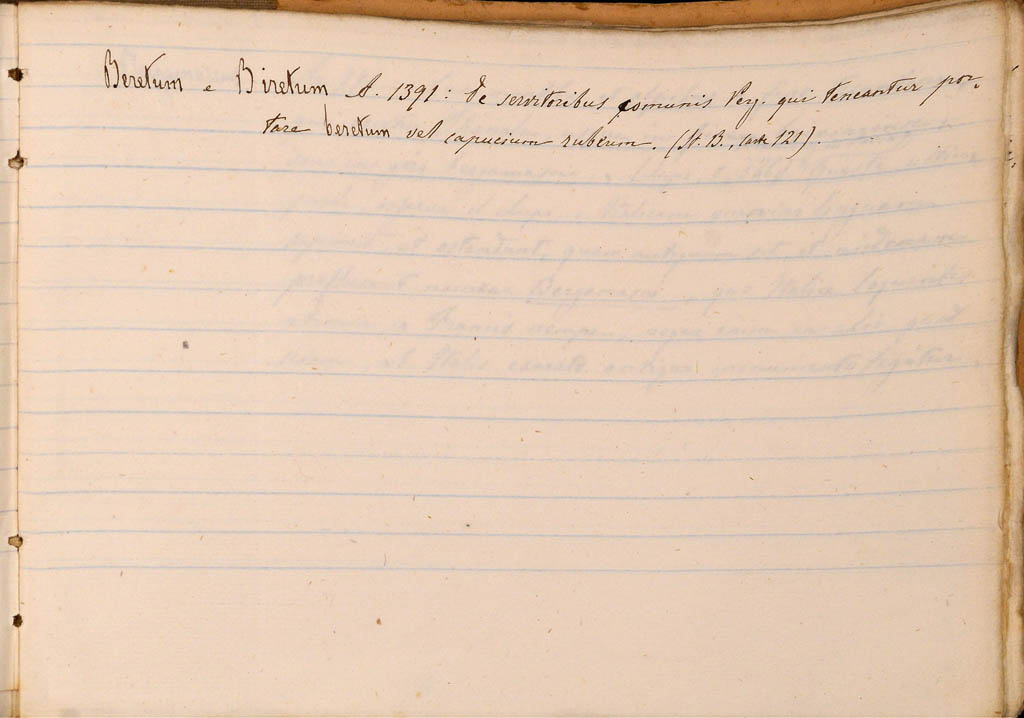 Beretum e Biretum A. 1391: de servitoribus comunis Perg. qui teneantur por-
tare beretum vel capucium rubeum. (St. B., carte 121).